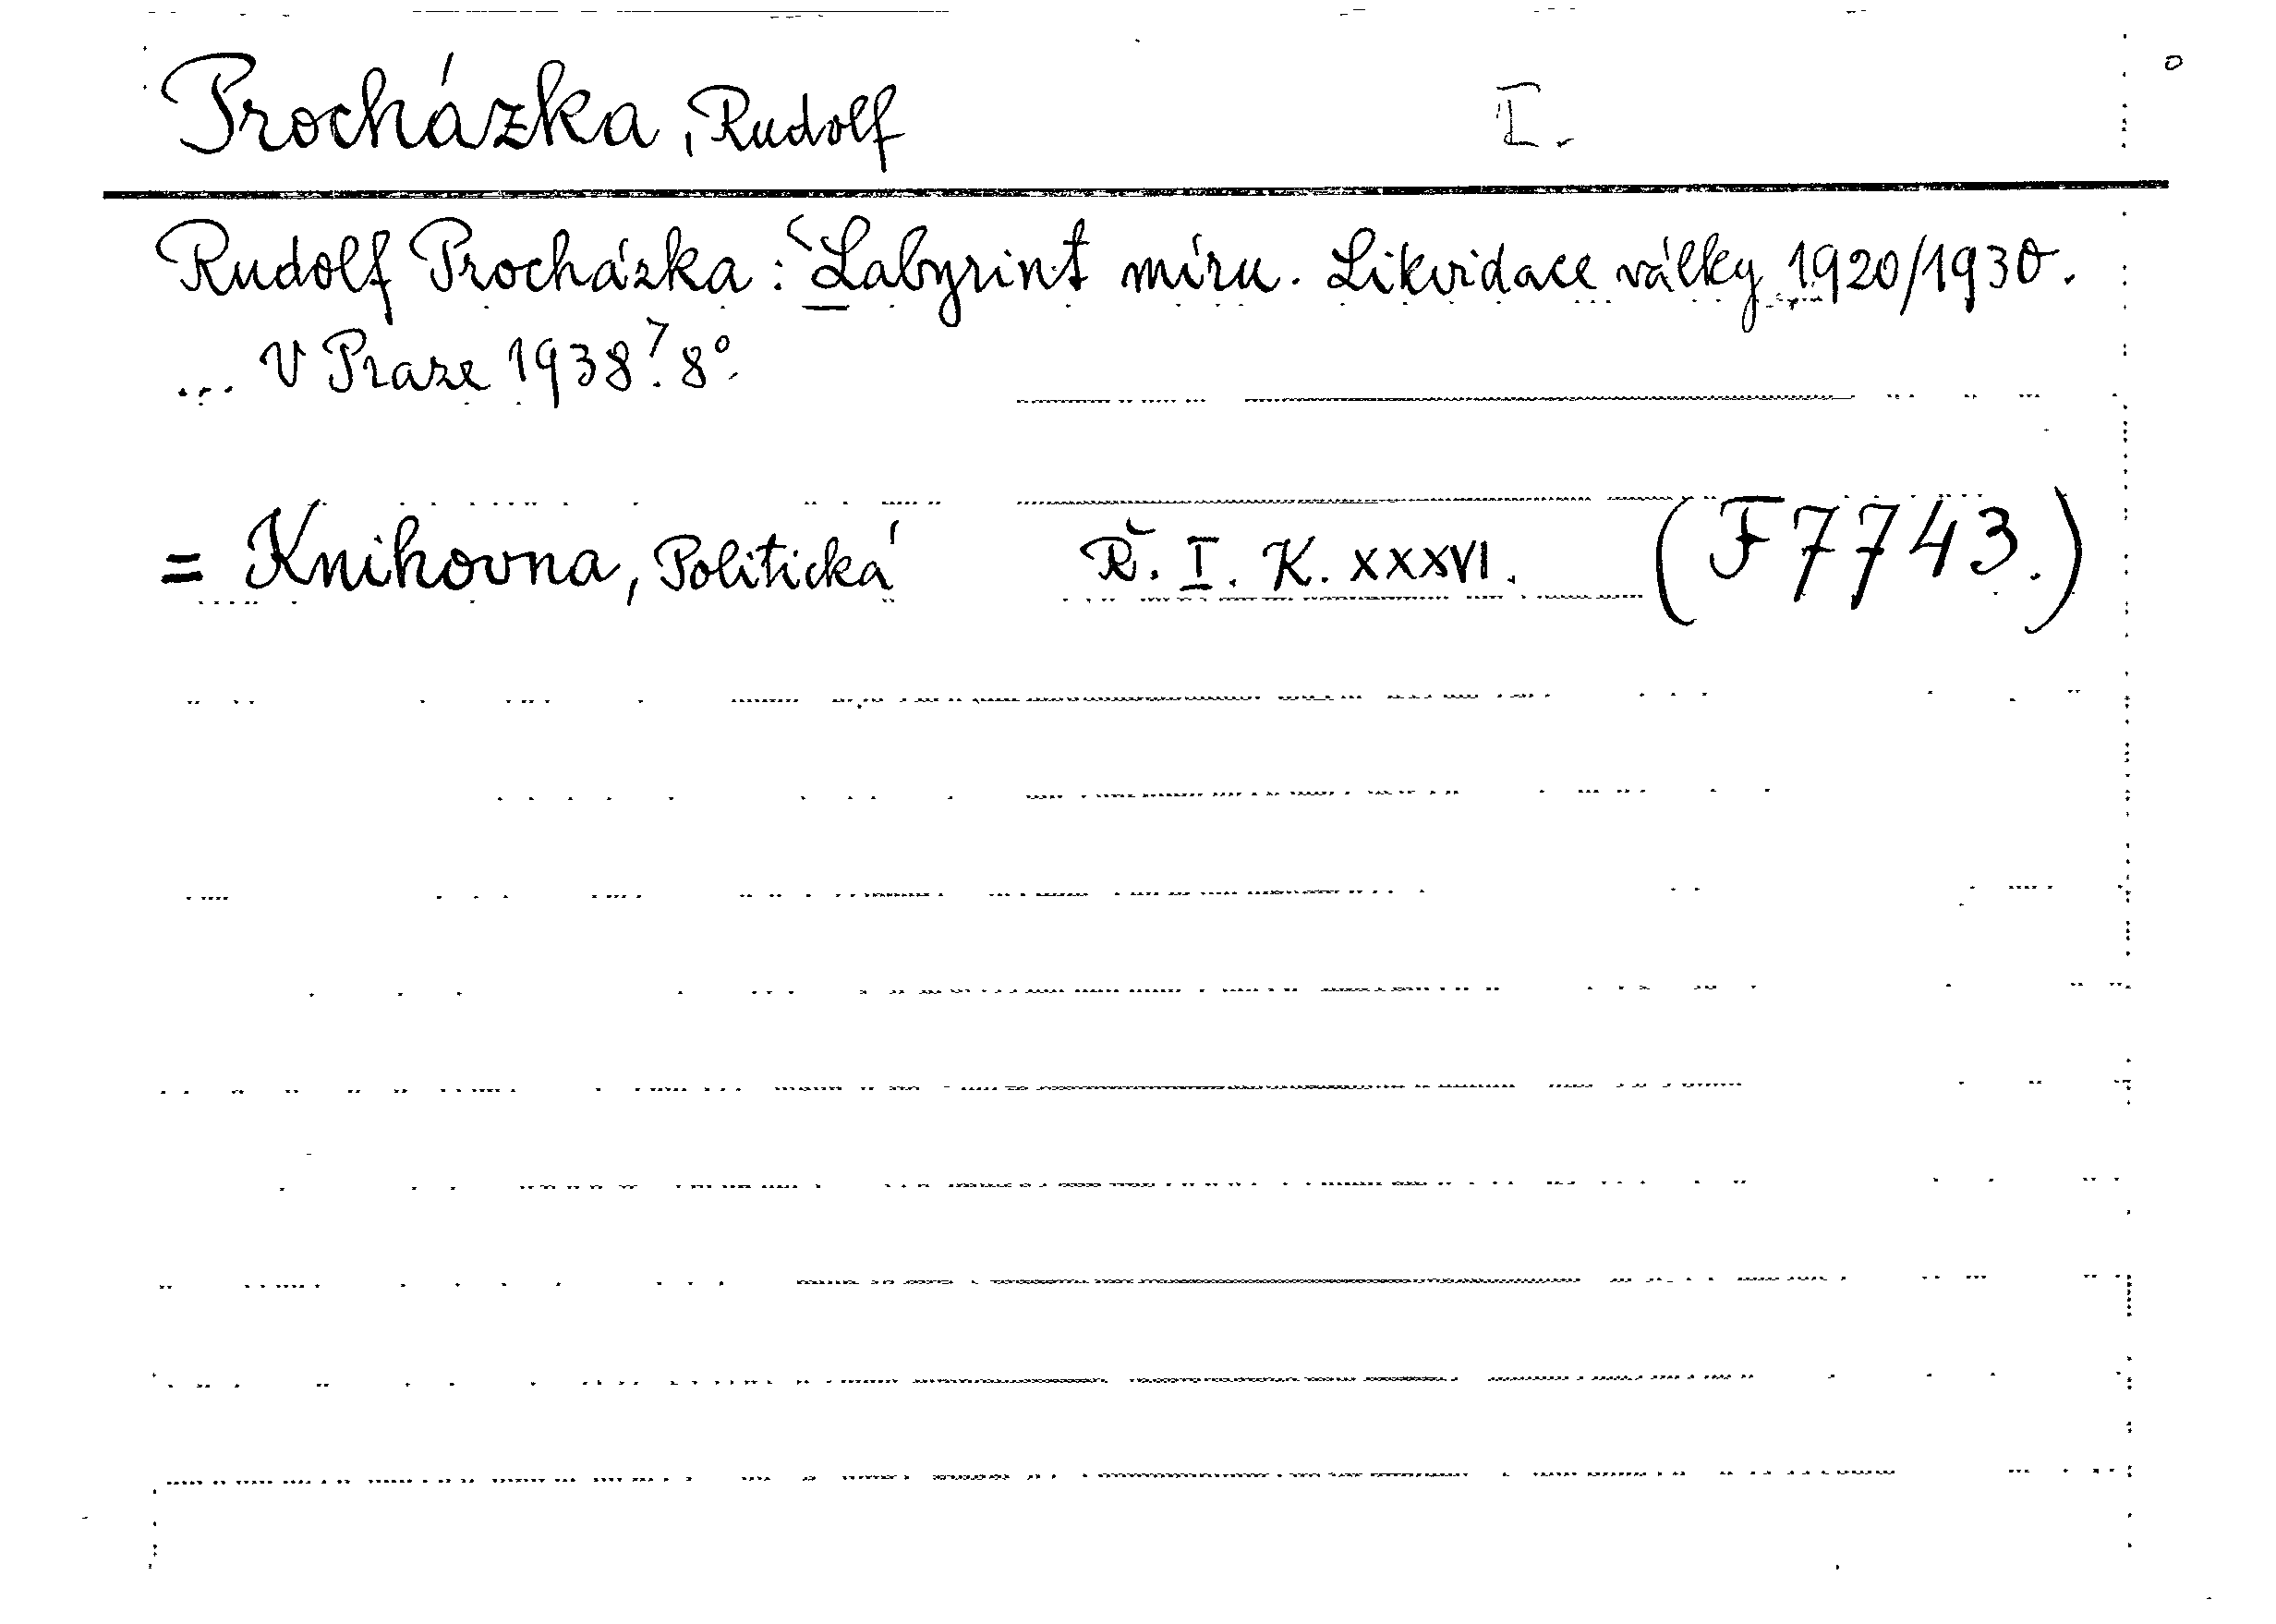 Procházka, Rudolf I.
Rudolf Procházka: Labyrint míru. Likvidace války 1920/1930.
... V Praze 1938. 8°.
= Knihovna, Politická Ř. I. K. XXXVI. (F 7743.)